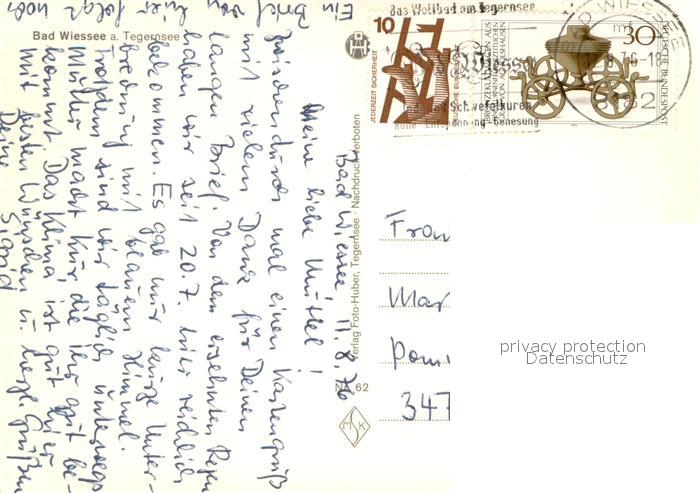 Bad Wiessee a. Tegernsee
Bad Wiessee 11.8.76
Meine liebe Mutter!
Zwischendurch mal einen Kartengruß
mit vielem Dank für Deinen
langen Brief. Von dem ersehnten Regen
haben wir seit 20.7. hier reichlich
bekommen. Es gab nur kurze Unter-
brechung mit blauem Himmel.
Trotzdem sind wir täglich unterwegs
Mutter macht Kur, die ihr gut be-
kommt. Das Klima ist gut hier
mit besten Wünschen u. herzl. Grüßen
Deine Sigrid
Ein Brief von hier folgt noch
Verlag Foto-Huber, Tegernsee · Nachdruck verboten
Nr. 62
das Weltbad am Tegernsee
Jod- und Schwefelkuren
Ruhe-Entspannung-Genesung
10
JEDERZEIT SICHERHEIT
DEUTSCHE BUNDESPOST
30
DEUTSCHE BUNDESPOST
BAD WIESSEE
8182
Frau
Mar
347
privacy protection
Datenschutz